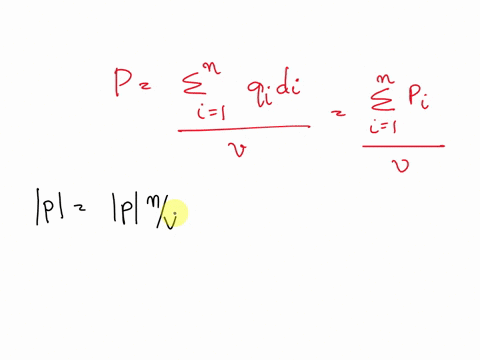 P = \frac{\sum_{i=1}^{n} q_i d_i}{v} = \frac{\sum_{i=1}^{n} P_i}{v}
|p| = |p| n/v